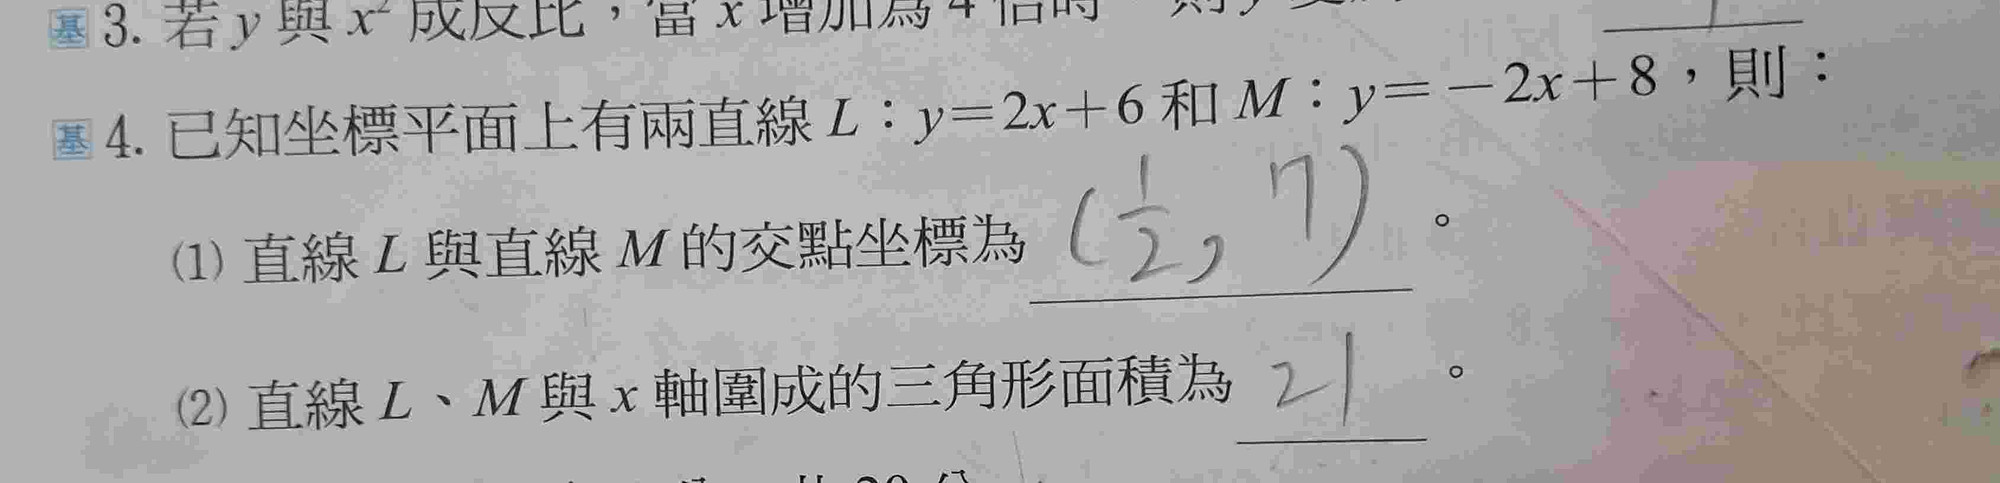 基 3. 若 y 與 x² 成反比，當 x 增加為 4 倍時
基 4. 已知坐標平面上有兩直線 L：y=2x+6 和 M：y=-2x+8，則：
(1) 直線 L 與直線 M 的交點坐標為 (1/2, 7) 。
(2) 直線 L、M 與 x 軸圍成的三角形面積為 21 。